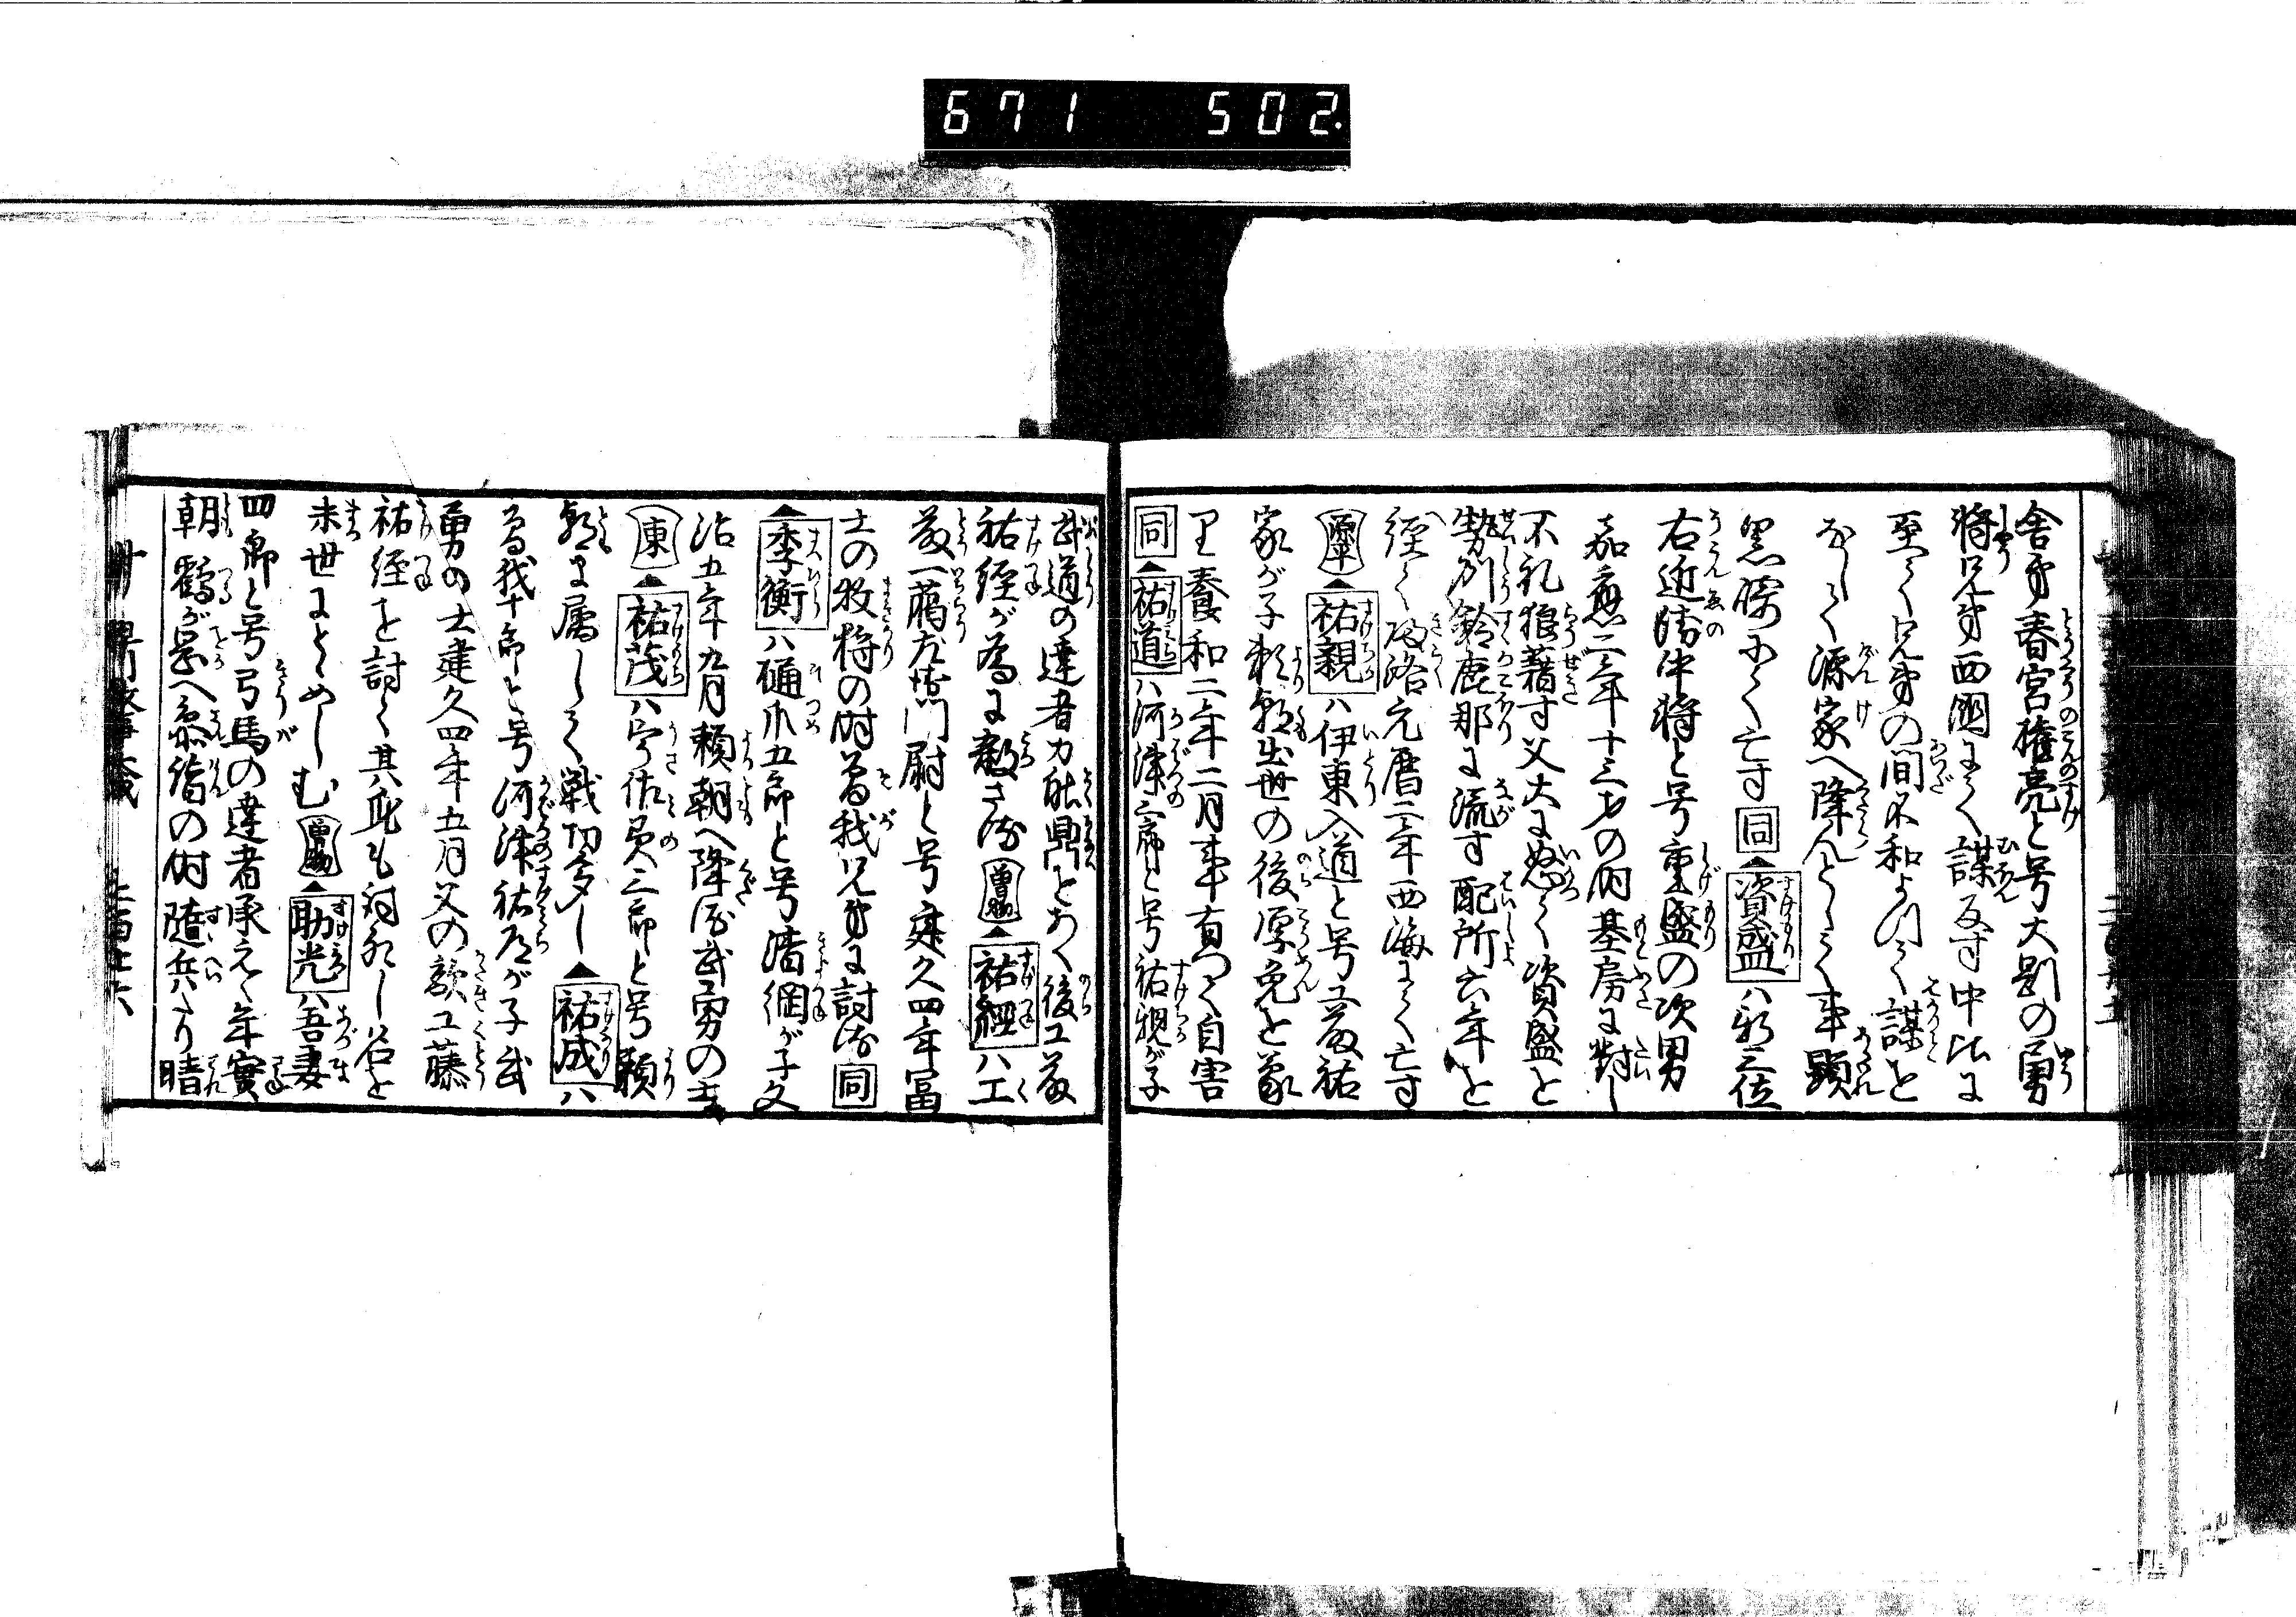 671 502.
舎弟春宮権亮と号大剛の勇
将兄弟西国にて謀反す中比に
至て兄弟の間不和よつて謀を
なして源家へ降んとして事顕
にて亡す 同 資盛ハ新三位
右近衛中将と号重盛の次男
嘉應二年十三才の时基房に對し
不礼狼藉す父大に怒て資盛を
勢刕鈴鹿那に流す配所六年を
経て帰洛元暦二年西海にて亡す
源平 祐親ハ伊東入道と号工藤祐
家が子頼朝出世の後厚免を蒙
り養和二年二月事有つて自害
同 祐道ハ河津三郎と号祐親が子
武道の達者力能鼎をあく後工藤
祐経が為に殺さる 曽我 祐經ハ工
藤一﨟左衛門尉と号建久四年冨
士の牧狩の时曽我兄弟に討る 同
季衡ハ樋爪五郎と号清綱が子文
治五年九月頼朝へ降る武勇の士
東 祐茂ハ宇佐美三郎と号頼
朝に属して戦功多し 祐成ハ
曽我十郎と号河津祐道が子武
勇の士建久四年五月父の敵工藤
祐経を討て其身も討死し名を
末世にとゝめしむ 曽我 助光ハ吾妻
四郎と号弓馬の達者承元々年實
朝鶴が岡へ参詣の时随兵たり晴